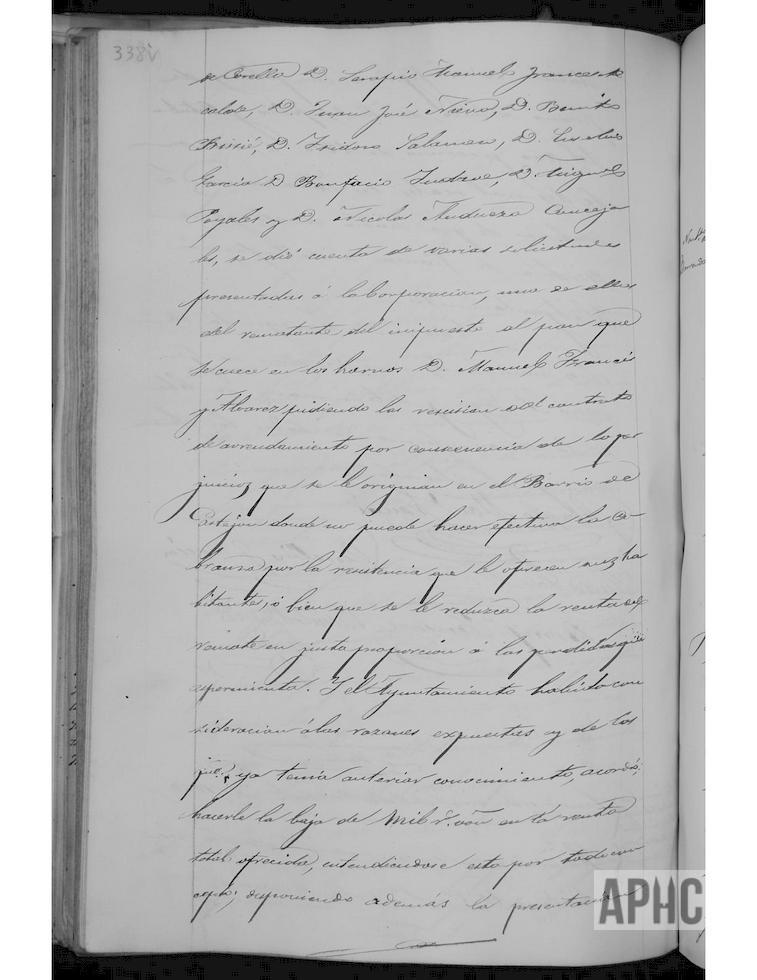 338v
de Corella D. Serapio Manuel Frances de
calde, D. Juan José Nieva, D. Benito
D. Isidoro Salamero, D. Eusebio
Garcia D Bonifacio D. Miguel
Poyales y D. Nicolas Andueza Conceja
les, se dió cuenta de varias solicitudes
presentadas á la Corporacion, una de ellas
del rematante del impuesto al pan que
se cuece en los hornos D. Manuel Francés
y Alvarez pidiendo la rescision del contrato
de arrendamiento por consecuencia de los per
juicios que se le originan en el Barrio de
Castejon donde no puede hacer efectiva la co-
branza por la resistencia que le ofrecen sus ha
bitantes, ó bien que se le reduzca la renta del
remate en justa proporción á las perdidas que
esperimenta. Y el Ayuntamiento habida con
sideracion á las razones expuestas y de los
que ya tenia anterior conocimiento, acordó,
hacerle la baja de Mil r. von en la renta
total ofrecida, entendiendose esto por todo con
cepto; disponiendo además la presentacion
APHC